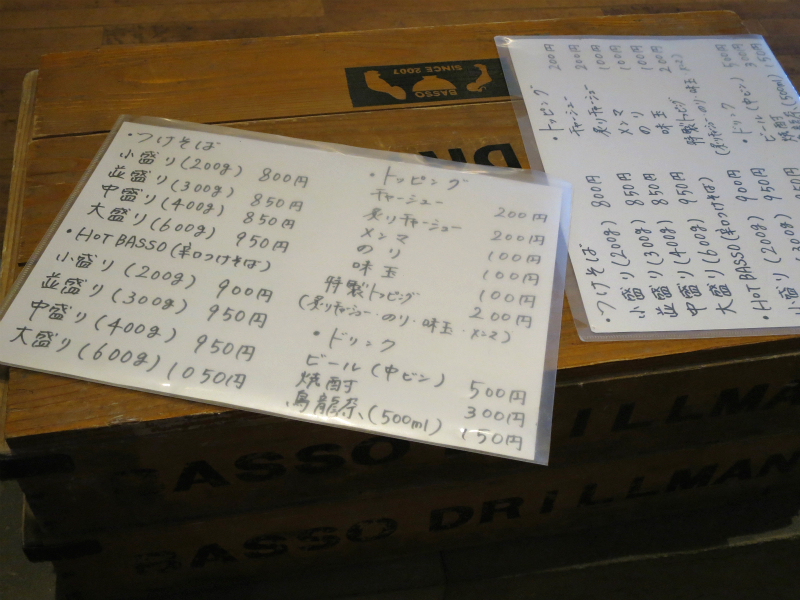 ・つけそば
小盛り(200g) 800円
並盛り(300g) 850円
中盛り(400g) 850円
大盛り(600g) 950円
・HOT BASSO(辛口つけそば)
小盛り(200g) 900円
並盛り(300g) 950円
中盛り(400g) 950円
大盛り(600g) 1050円
・トッピング
チャーシュー 200円
炙りチャーシュー 200円
メンマ 100円
のり 100円
味玉 100円
特製トッピング 200円
(炙りチャーシュー・のり・味玉・メンマ)
・ドリンク
ビール(中ビン) 500円
焼酎 300円
烏龍茶(500ml) 150円
・トッピング
チャーシュー 200円
炙りチャーシュー 200円
メンマ 100円
のり 100円
味玉 100円
特製トッピング 200円
(炙りチャーシュー・のり・味玉・メンマ)
・ドリンク
ビール(中ビン) 500円
焼酎 300円
(500ml) 150円
・つけそば
小盛り(200g) 800円
並盛り(300g) 850円
中盛り(400g) 850円
大盛り(600g) 950円
・HOT BASSO(辛口つけそば)
小盛り(200g) 900円
(300g) 950円
BASSO
SINCE 2007
DR
BASSO DRiLLMAN
BASSO DRiLLMAN